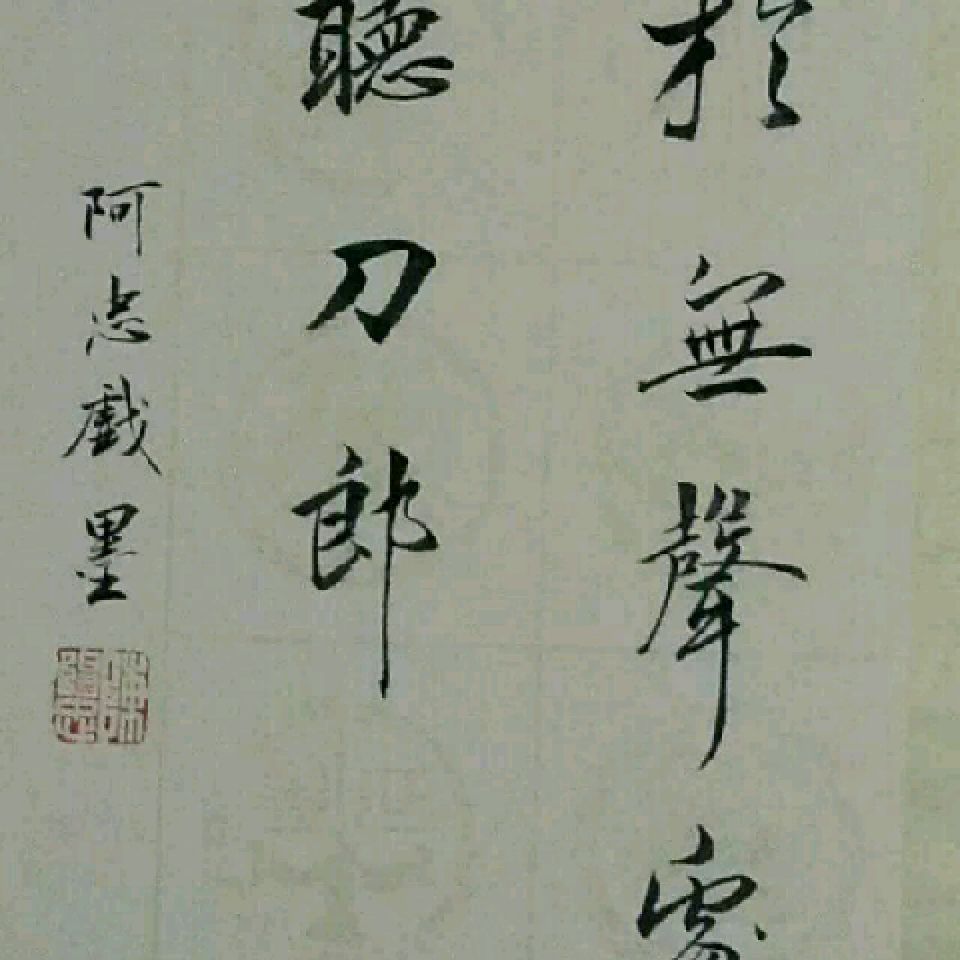 於無聲處
聽刀郎
阿志戲墨